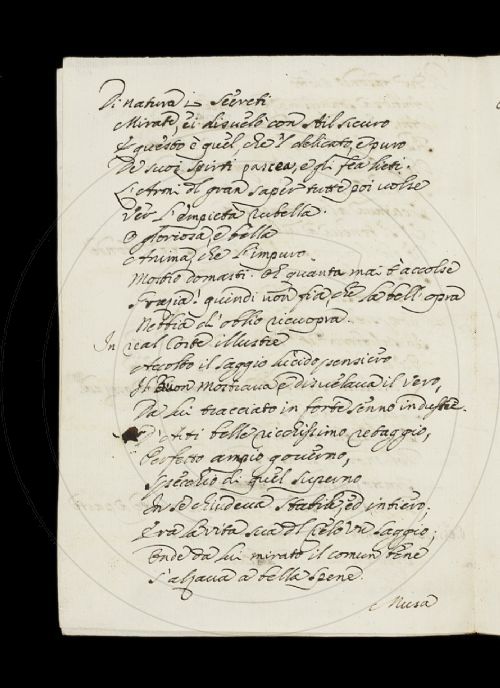 Di natura i Secreti
Mirati, ei disvelò con stil sicuro
E questo è quel che 'l delicato, e puro
De suoi spirti pascea, e gli fea lieti.
L'Armi del gran saper tutte poi volse
Ver l'empietà rubella.
O gloriosa, e bella
Anima, che l'impuro
Mostro domasti. Oh quanta in a' t'accolse
Grazia! quindi non fia, che la bell'opra
Nebbia d'oblio ricuopra.
In real Corte illustre
Accolto il saggio suo pensiero
Il Buon mostrava e disvelava il Vero,
Da lui tracciato in forte senno industre.
D'Arti belle ricchissimo retaggio,
Perfetto ampio governo,
Specchio di quel superno
In se chiudeva stabile, ed intiero;
Era la vita sua del Cielo un saggio;
Onde da lui mirato il comun bene
S'alzava a bella spene.
Musa